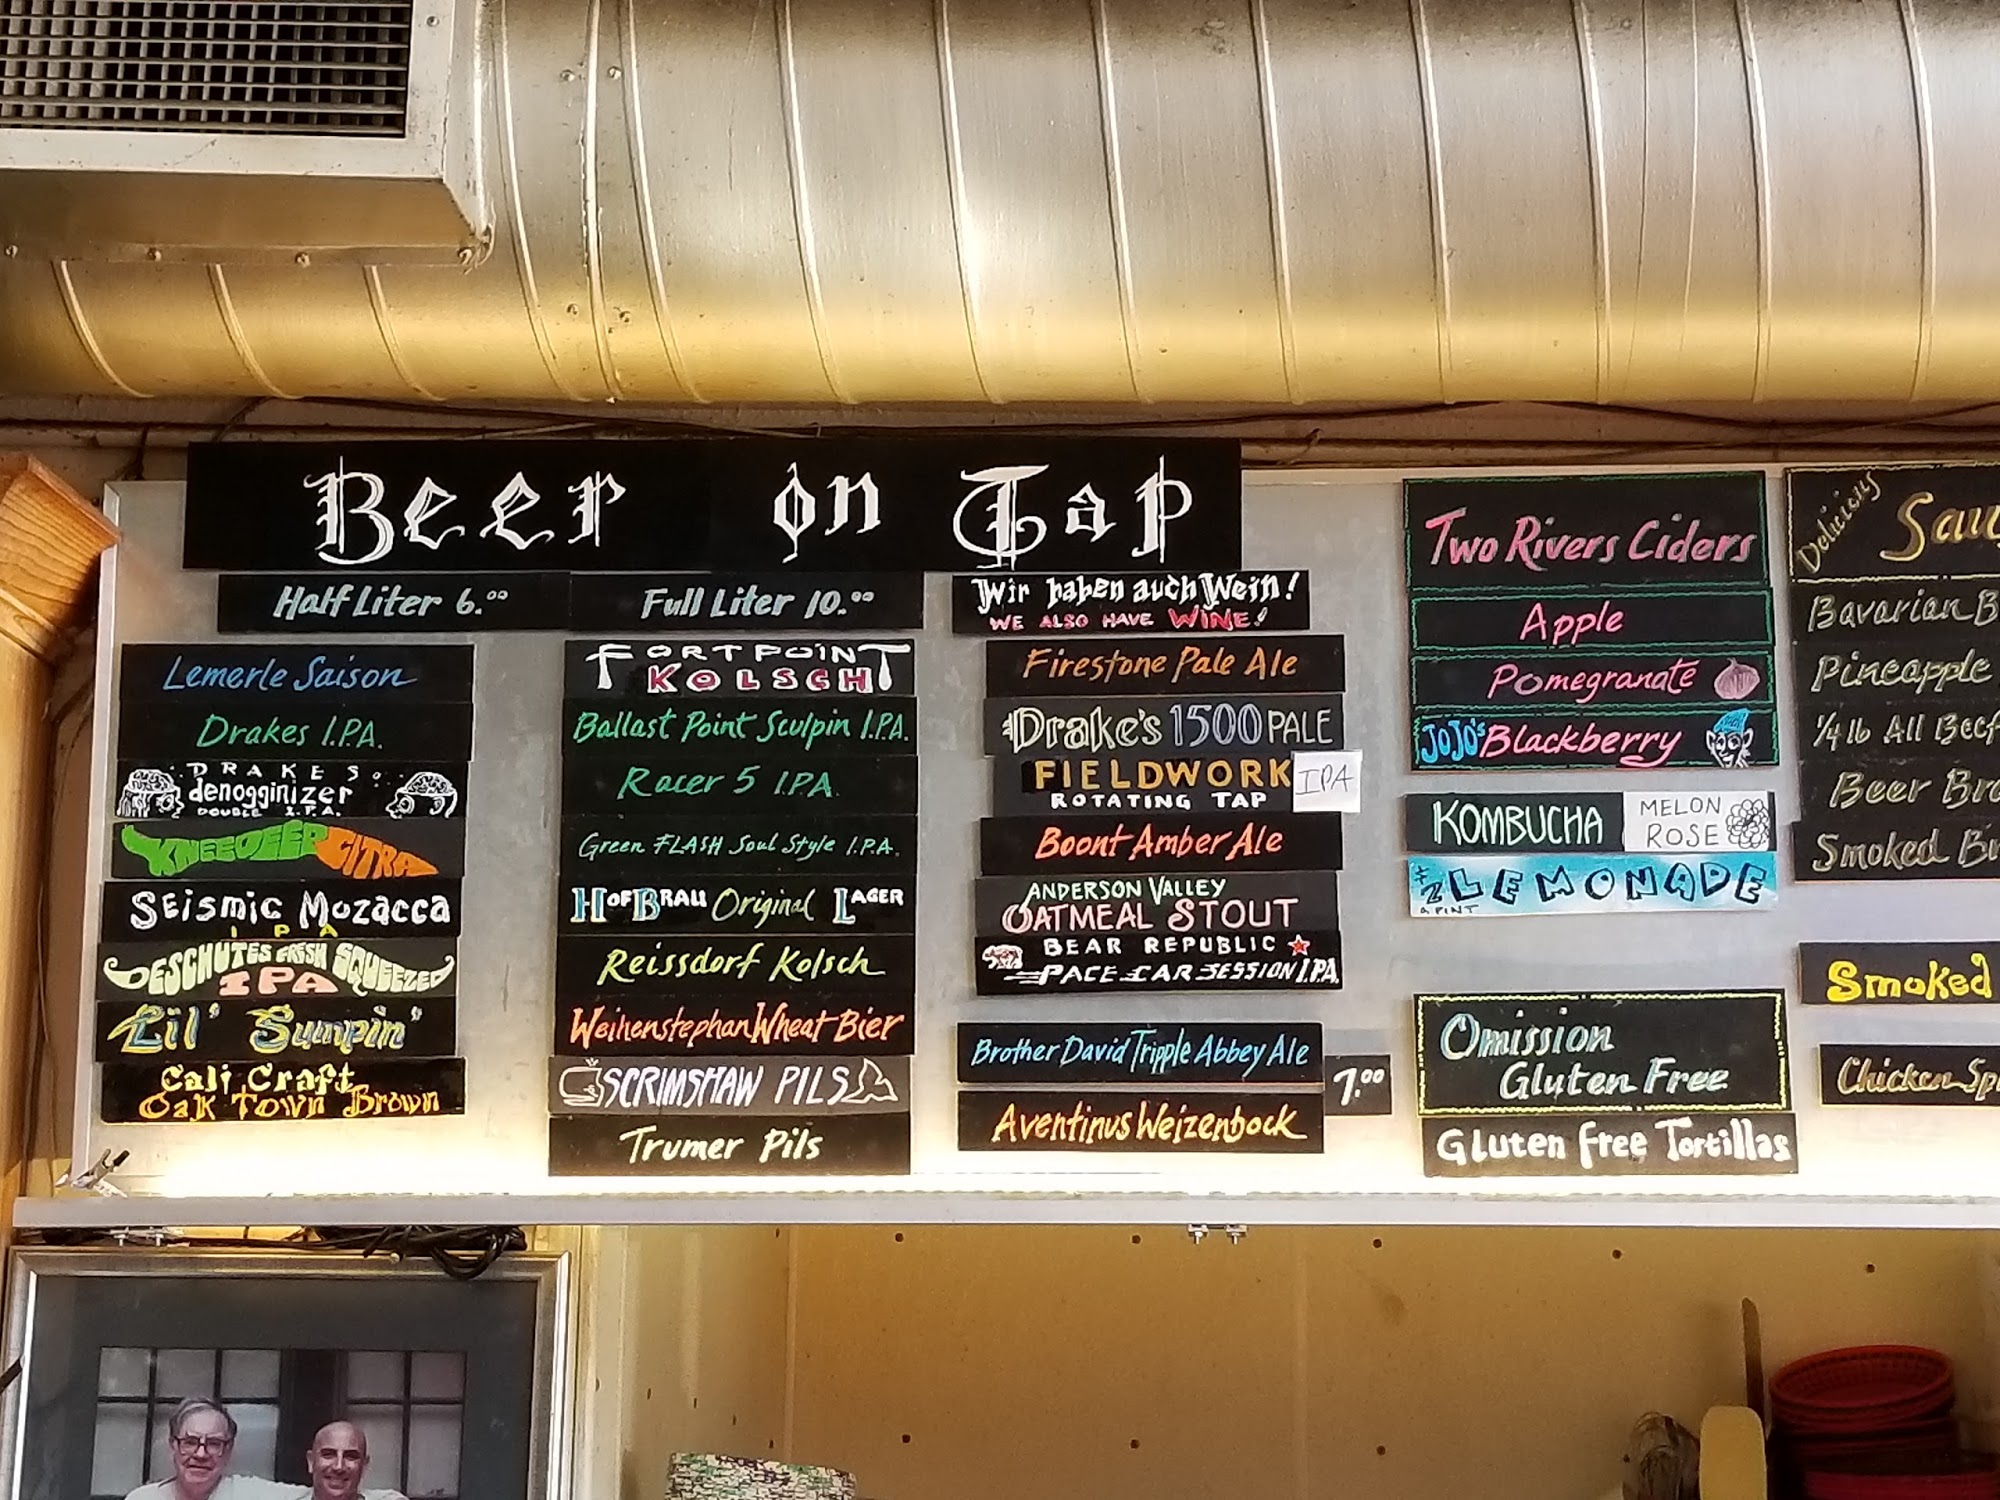 Beer on Tap
Half Liter 6.00
Full Liter 10.00
Wir haben auch Wein!
WE ALSO HAVE WINE!
Lemerle Saison
Drakes I.P.A.
DRAKES
denogginizer
DOUBLE I.P.A.
KNEEDEEP CITRA
SEISMIC MOZACCA
IPA
DESCHUTES FRESH SQUEEZED
IPA
Lil' Sumpin'
Cali Craft
Oak Town Brown
FORT POINT
KOLSCH
Ballast Point Sculpin I.P.A.
Racer 5 I.P.A.
Green FLASH Soul Style I.P.A.
HOFBRAU Original LAGER
Reissdorf Kolsch
Weihenstephan Wheat Bier
SCRIMSHAW PILS
Trumer Pils
Firestone Pale Ale
Drake's 1500 PALE
FIELDWORK IPA
ROTATING TAP
Boont Amber Ale
ANDERSON VALLEY
OATMEAL STOUT
BEAR REPUBLIC
PACE CAR SESSION I.P.A.
Brother David Tripple Abbey Ale
7.00
Aventinus Weizenbock
Two Rivers Ciders
Apple
Pomegranate
JOJO'S Blackberry
KOMBUCHA MELON
ROSE
LEMONADE
A PINT
Omission
Gluten Free
Gluten free Tortillas
Delicious
Bavarian
Pineapple
1/4 lb All Beef
Beer
Smoked
Smoked
Chicken